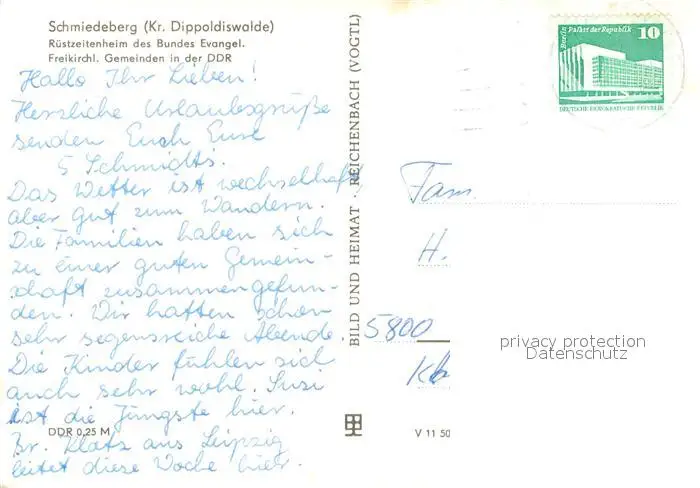 Schmiedeberg (Kr. Dippoldiswalde)
Rüstzeitenheim des Bundes Evangel.
Freikirchl. Gemeinden in der DDR
Hallo Ihr Lieben!
Herzliche Urlaubsgrüße
senden Euch Eure
5 Schmidt's.
Das Wetter ist wechselhaft
aber gut zum Wandern.
Die Familien haben sich
zu einer guten Gemein-
schaft zusammengefun-
den. Wir hatten schon
sehr segensreiche Abende.
Die Kinder fühlen sich
auch sehr wohl. Susi
ist die Jüngste hier.
Br. Klatz aus Leipzig
leitet diese Woche hier.
DDR 0,25 M
BILD UND HEIMAT · REICHENBACH (VOGTL)
V 11 50
Berlin Palast der Republik
10
DEUTSCHE DEMOKRATISCHE REPUBLIK
Fam.
H.
5800
privacy protection
Datenschutz